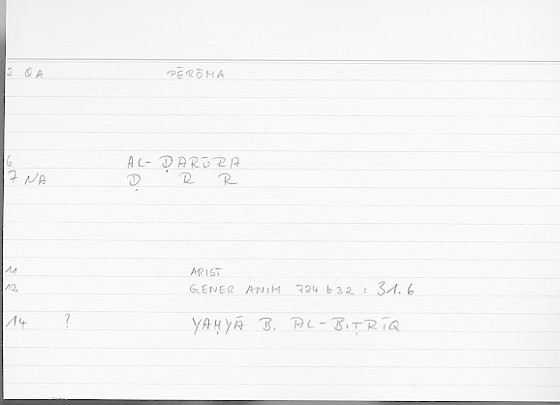 2 QA PĒRŌMA
6 AL-ḌARŪRA
7 NA Ḍ R R
11 ARIST
12 GENER ANIM 724 b 32 : 31.6
14 ? YAḤYĀ B. AL-BIṬRĪQ